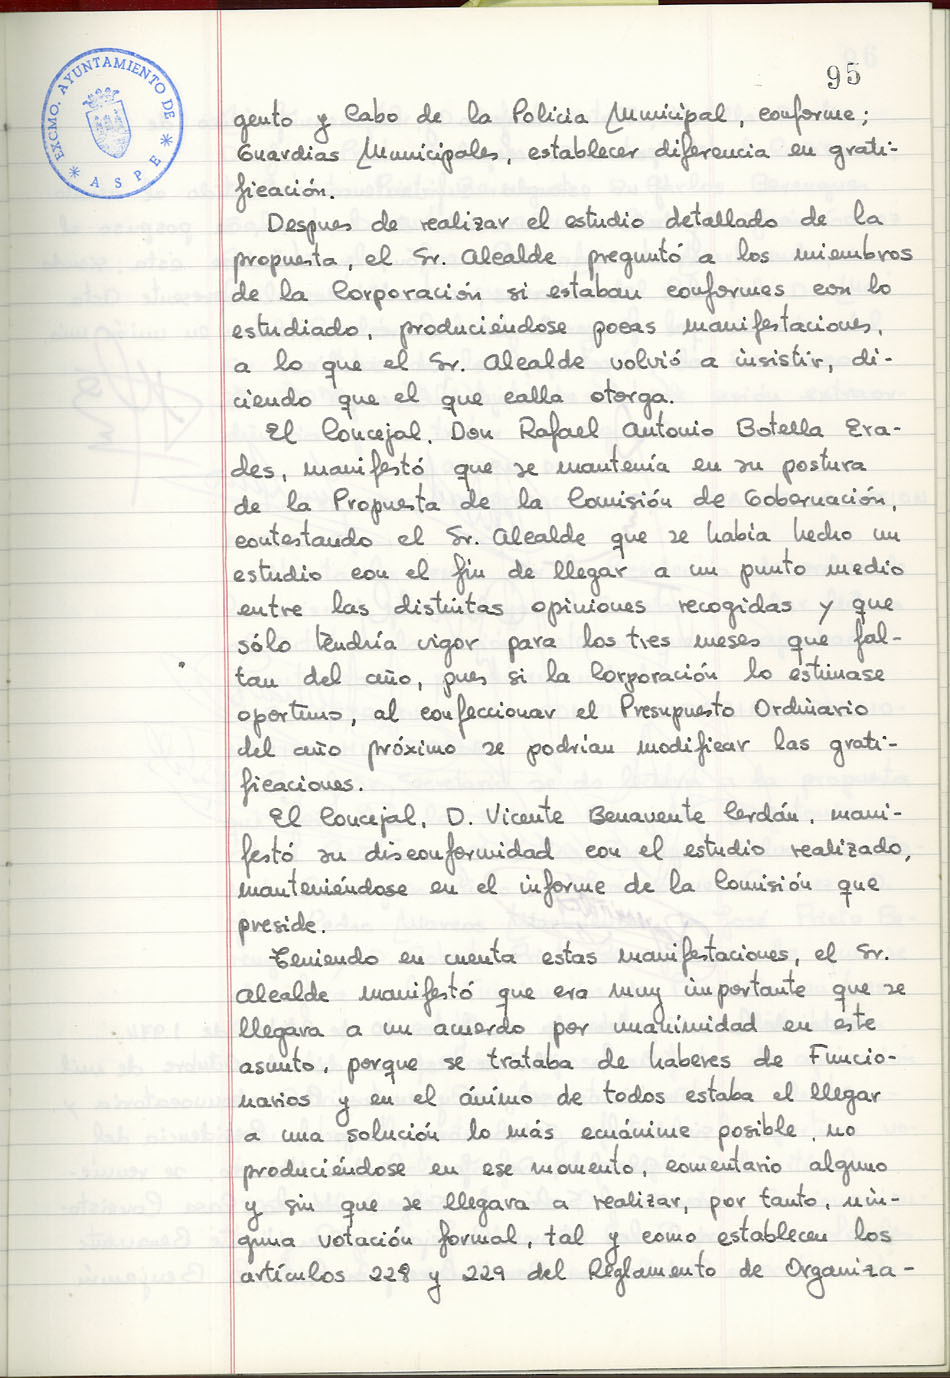 95
EXCMO. AYUNTAMIENTO DE
* ASPE *
gento y Cabo de la Policia Municipal, conforme;
Guardias Municipales, establecer diferencia en grati-
ficación.
Despues de realizar el estudio detallado de la
propuesta, el Sr. Alcalde preguntó a los miembros
de la Corporación si estaban conformes con lo
estudiado, produciéndose pocas manifestaciones,
a lo que el Sr. Alcalde volvió a insistir, di-
ciendo que el que calla otorga.
El Concejal, Don Rafael Antonio Botella Era-
des, manifestó que se mantenía en su postura
de la Propuesta de la Comisión de Gobernación,
contestando el Sr. Alcalde que se había hecho un
estudio con el fin de llegar a un punto medio
entre las distintas opiniones recogidas y que
sólo tendría vigor para los tres meses que fal-
tan del año, pues si la Corporación lo estimase
oportuno, al confeccionar el Presupuesto Ordinario
del año próximo se podrían modificar las grati-
ficaciones.
El Concejal, D. Vicente Benavente Cerdán, mani-
festó su disconformidad con el estudio realizado,
manteniéndose en el informe de la Comisión que
preside.
Teniendo en cuenta estas manifestaciones, el Sr.
Alcalde manifestó que era muy importante que se
llegara a un acuerdo por unanimidad en este
asunto, porque se trataba de haberes de Funcio-
narios y en el ánimo de todos estaba el llegar
a una solución lo más ecuánime posible, no
produciéndose en ese momento, comentario alguno
y sin que se llegara a realizar, por tanto, nin-
guna votación formal, tal y como establecen los
artículos 228 y 229 del Reglamento de Organiza-